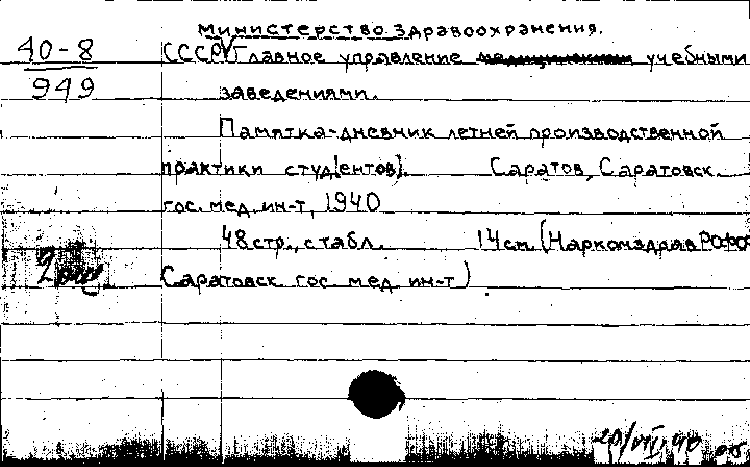 министерство здравоохранения.
40-8
949
СССР Главное управление учебными
заведениями.
Памятка-дневник летней производственной
практики студ[ентов]. Саратов, Саратовск.
гос. мед. ин-т, 1940
48 стр., с табл. 14 см. (Наркомздрав РСФСР
Саратовск гос мед ин-т)